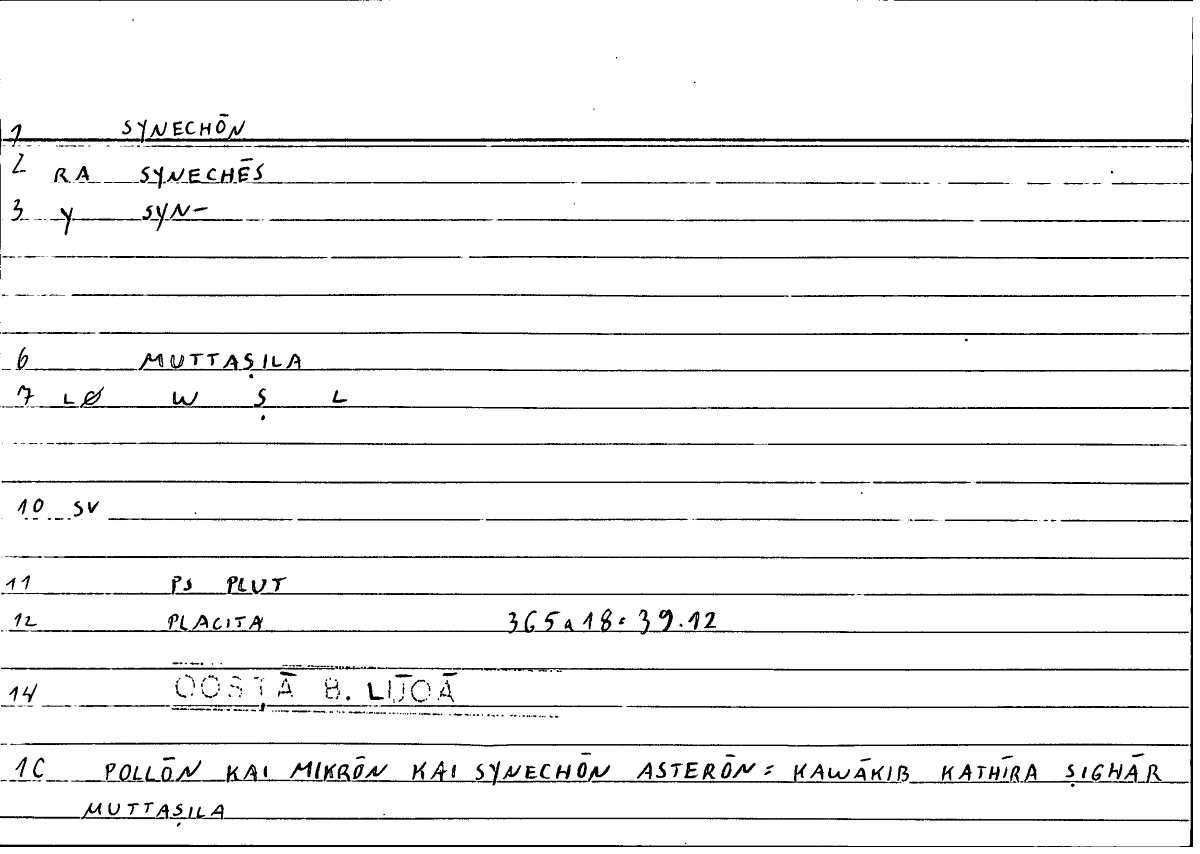 1 SYNECHŌN
2 RA SYNECHĒS
3 Y SYN-
6 MUTTAṢILA
7 LØ W Ṣ L
10 SV
11 PS PLUT
12 PLACITA 365a18=39.12
14 QOSṬĀ B. LŪQĀ
1C POLLŌN KAI MIKRŌN KAI SYNECHŌN ASTERŌN = KAWĀKIB KATHĪRA ṢIGHĀR
MUTTAṢILA